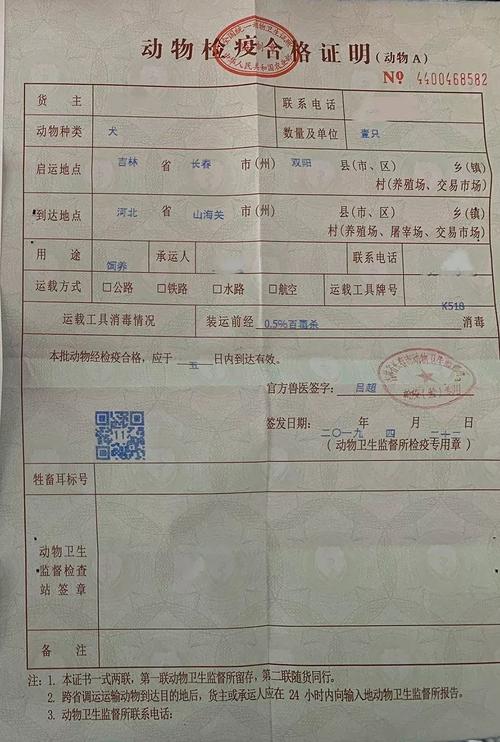 动物检疫合格证明(动物A)
№ 4400468582
货 主 联系电话
动物种类 犬 数量及单位 壹只
启运地点 吉林 省 长春 市(州) 双阳 县(市、区) 乡(镇)
村(养殖场、交易市场)
到达地点 河北 省 山海关 市(州) 县(市、区) 乡(镇)
村(养殖场、屠宰场、交易市场)
用 途 饲养 承运人 联系电话
运载方式 □公路 □铁路 □水路 □航空 运载工具牌号 K518
运载工具消毒情况 装运前经 0.5%百毒杀 消毒
本批动物经检疫合格，应于 五 日内到达有效。
官方兽医签字: 吕超
签发日期: 二〇一九 年 四 月 二十二 日
(动物卫生监督所检疫专用章)
牲畜耳标号
动物卫生
监督检查
站签章
备 注
注: 1. 本证书一式两联，第一联动物卫生监督所留存，第二联随货同行。
2. 跨省调运输动物到达目的地后，货主或承运人应在 24 小时内向输入地动物卫生监督所报告。
3. 动物卫生监督所联系电话: